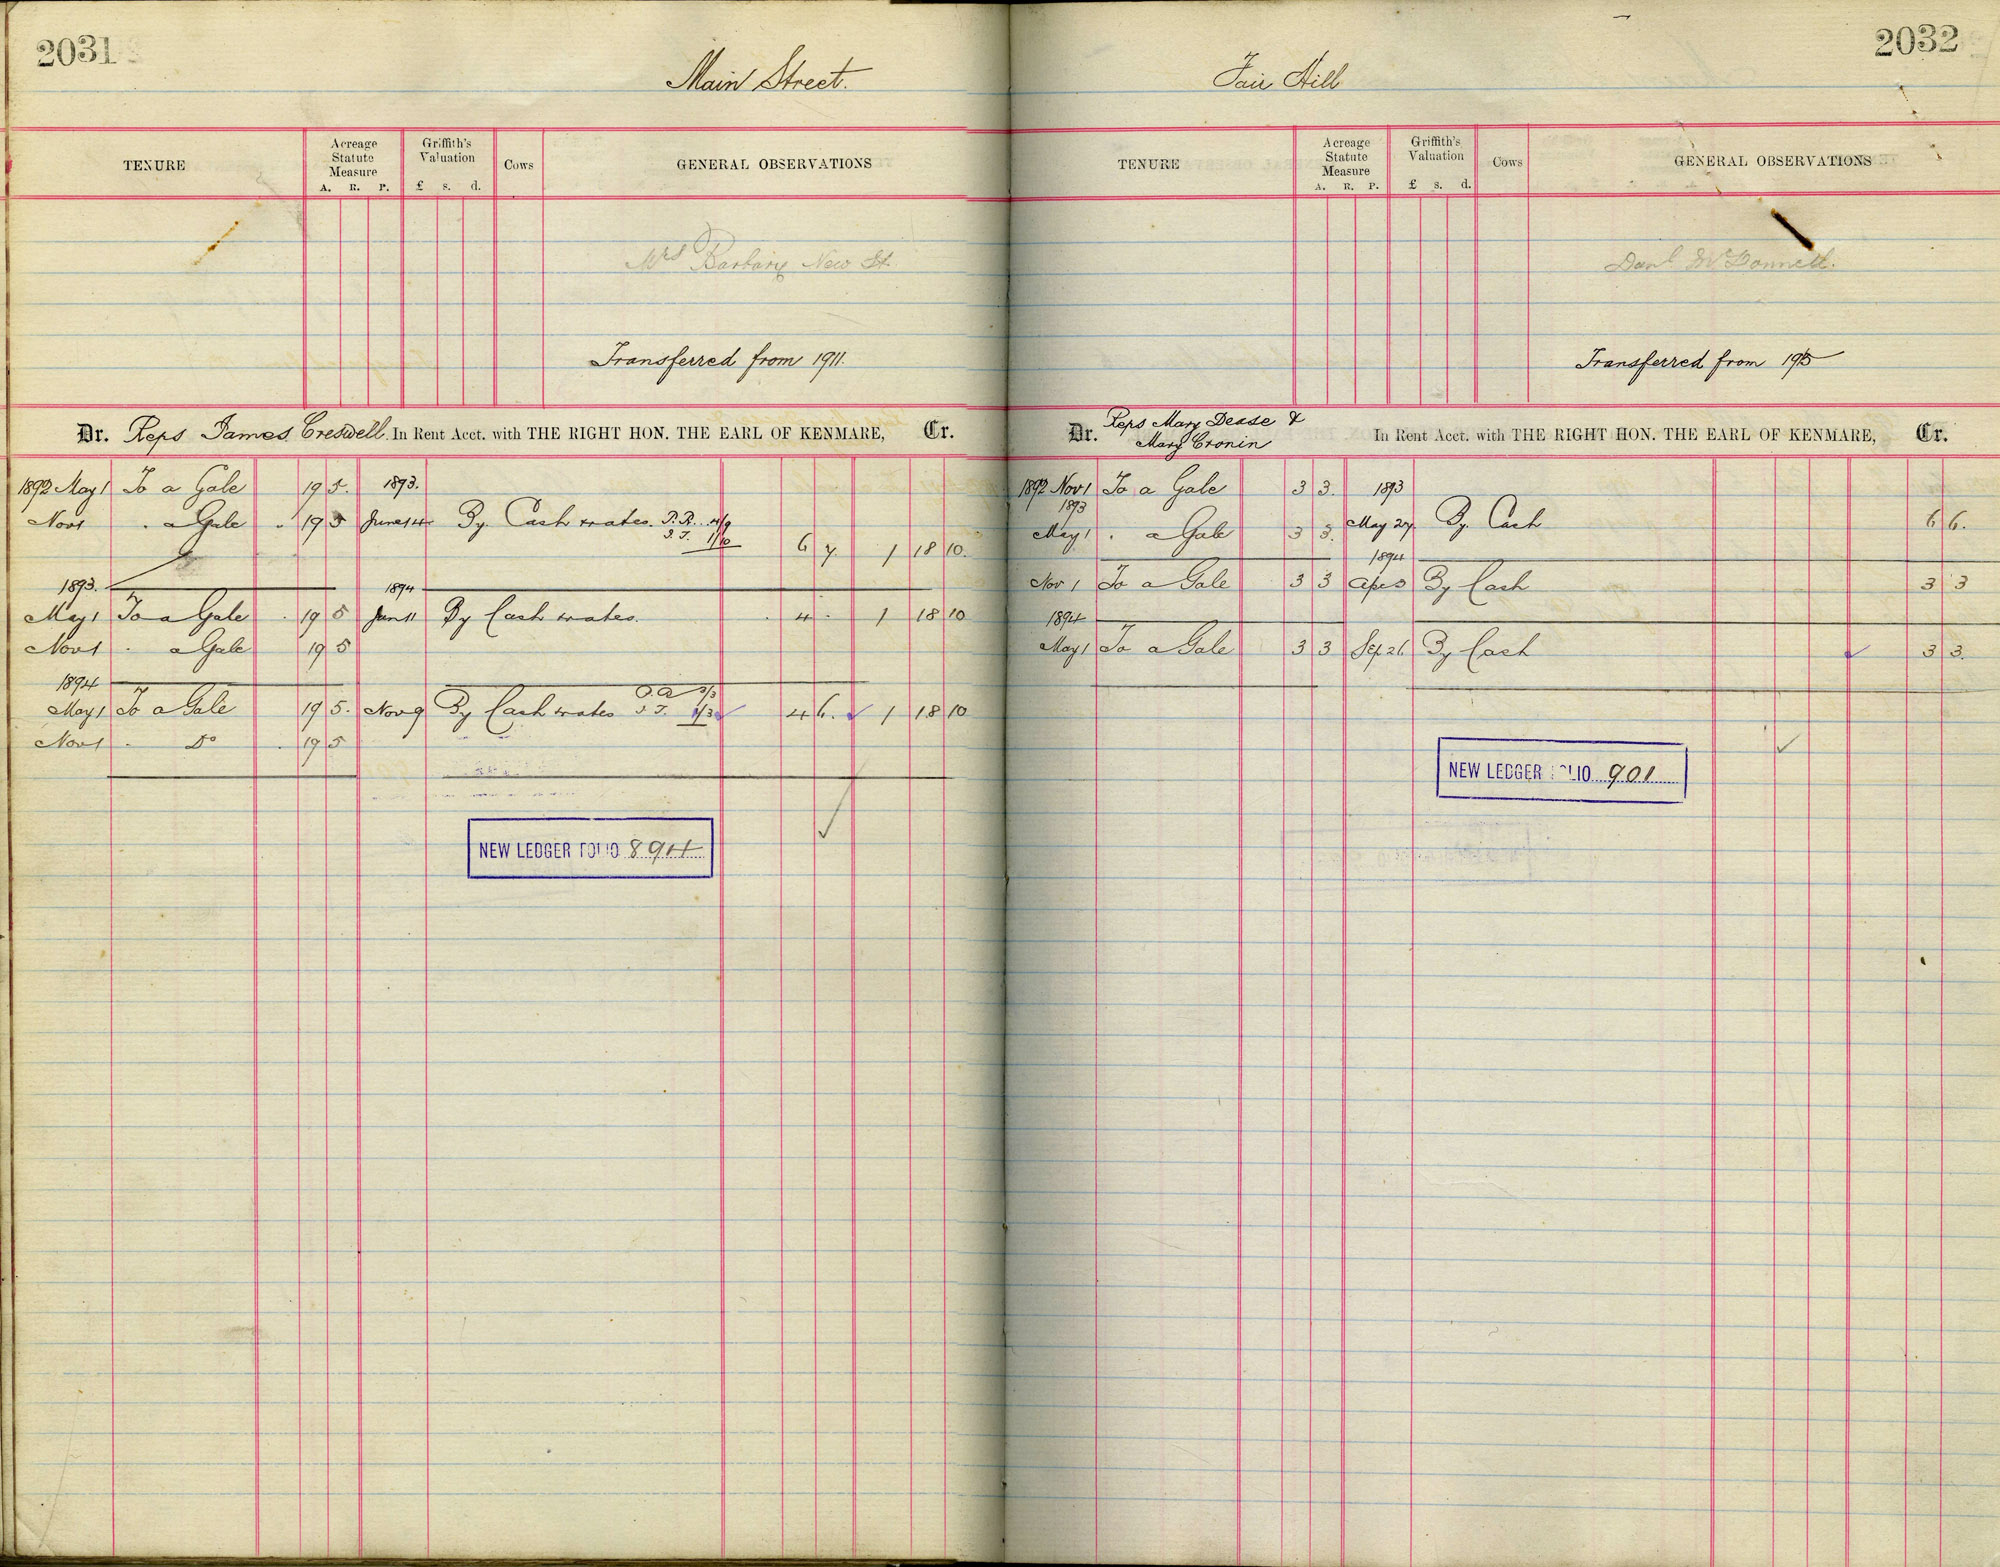 2031
Main Street.
TENURE
Acreage Statute Measure
A. R. P.
Griffith's Valuation
£ s. d.
Cows
GENERAL OBSERVATIONS
Mrs Barbary New St
Transferred from 1911.
Dr. Reps James Creswell. In Rent Acct. with THE RIGHT HON. THE EARL OF KENMARE, Cr.
1892 May 1 To a Gale 19 5. 1893.
Nov 1 . a Gale . 19 5 June 14 By Cash & rates. P.R. 4/9
I.T. 1/10
6 7. 1 18 10.
1893. 1894
May 1 To a Gale . 19 5 Jan 11 By Cash & rates. . 4 . 1 18 10
Nov 1 . a Gale 19 5
1894
May 1 To a Gale 19 5. Nov 9 By Cash & rates P.R. 3/3 4 6. 1 18 10
I.T. 1/3
Nov 1 . Do . 19 5
NEW LEDGER FOLIO 894
2032
Fair Hill
TENURE
Acreage Statute Measure
A. R. P.
Griffith's Valuation
£ s. d.
Cows
GENERAL OBSERVATIONS
Danl McDonnell.
Transferred from 1915
Dr. Reps Mary Dease &
Mary Cronin
In Rent Acct. with THE RIGHT HON. THE EARL OF KENMARE, Cr.
1892 Nov 1 To a Gale 3 3. 1893
1893
May 1 . a Gale 3 3. May 27. By Cash 6 6.
1894
Nov 1 To a Gale 3 3 Apr 3 By Cash 3 3
1894
May 1 To a Gale 3 3 Sep 26 By Cash 3 3.
NEW LEDGER FOLIO 901